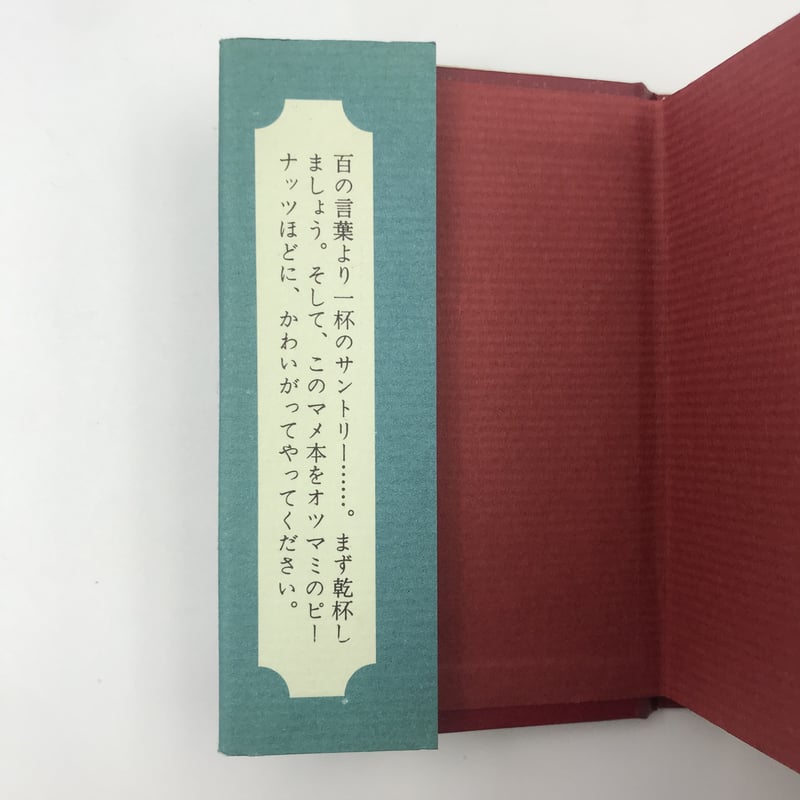 百の言葉より一杯のサントリー……。まず乾杯し
ましょう。そして、このマメ本をオツマミのピー
ナッツほどに、かわいがってやってください。